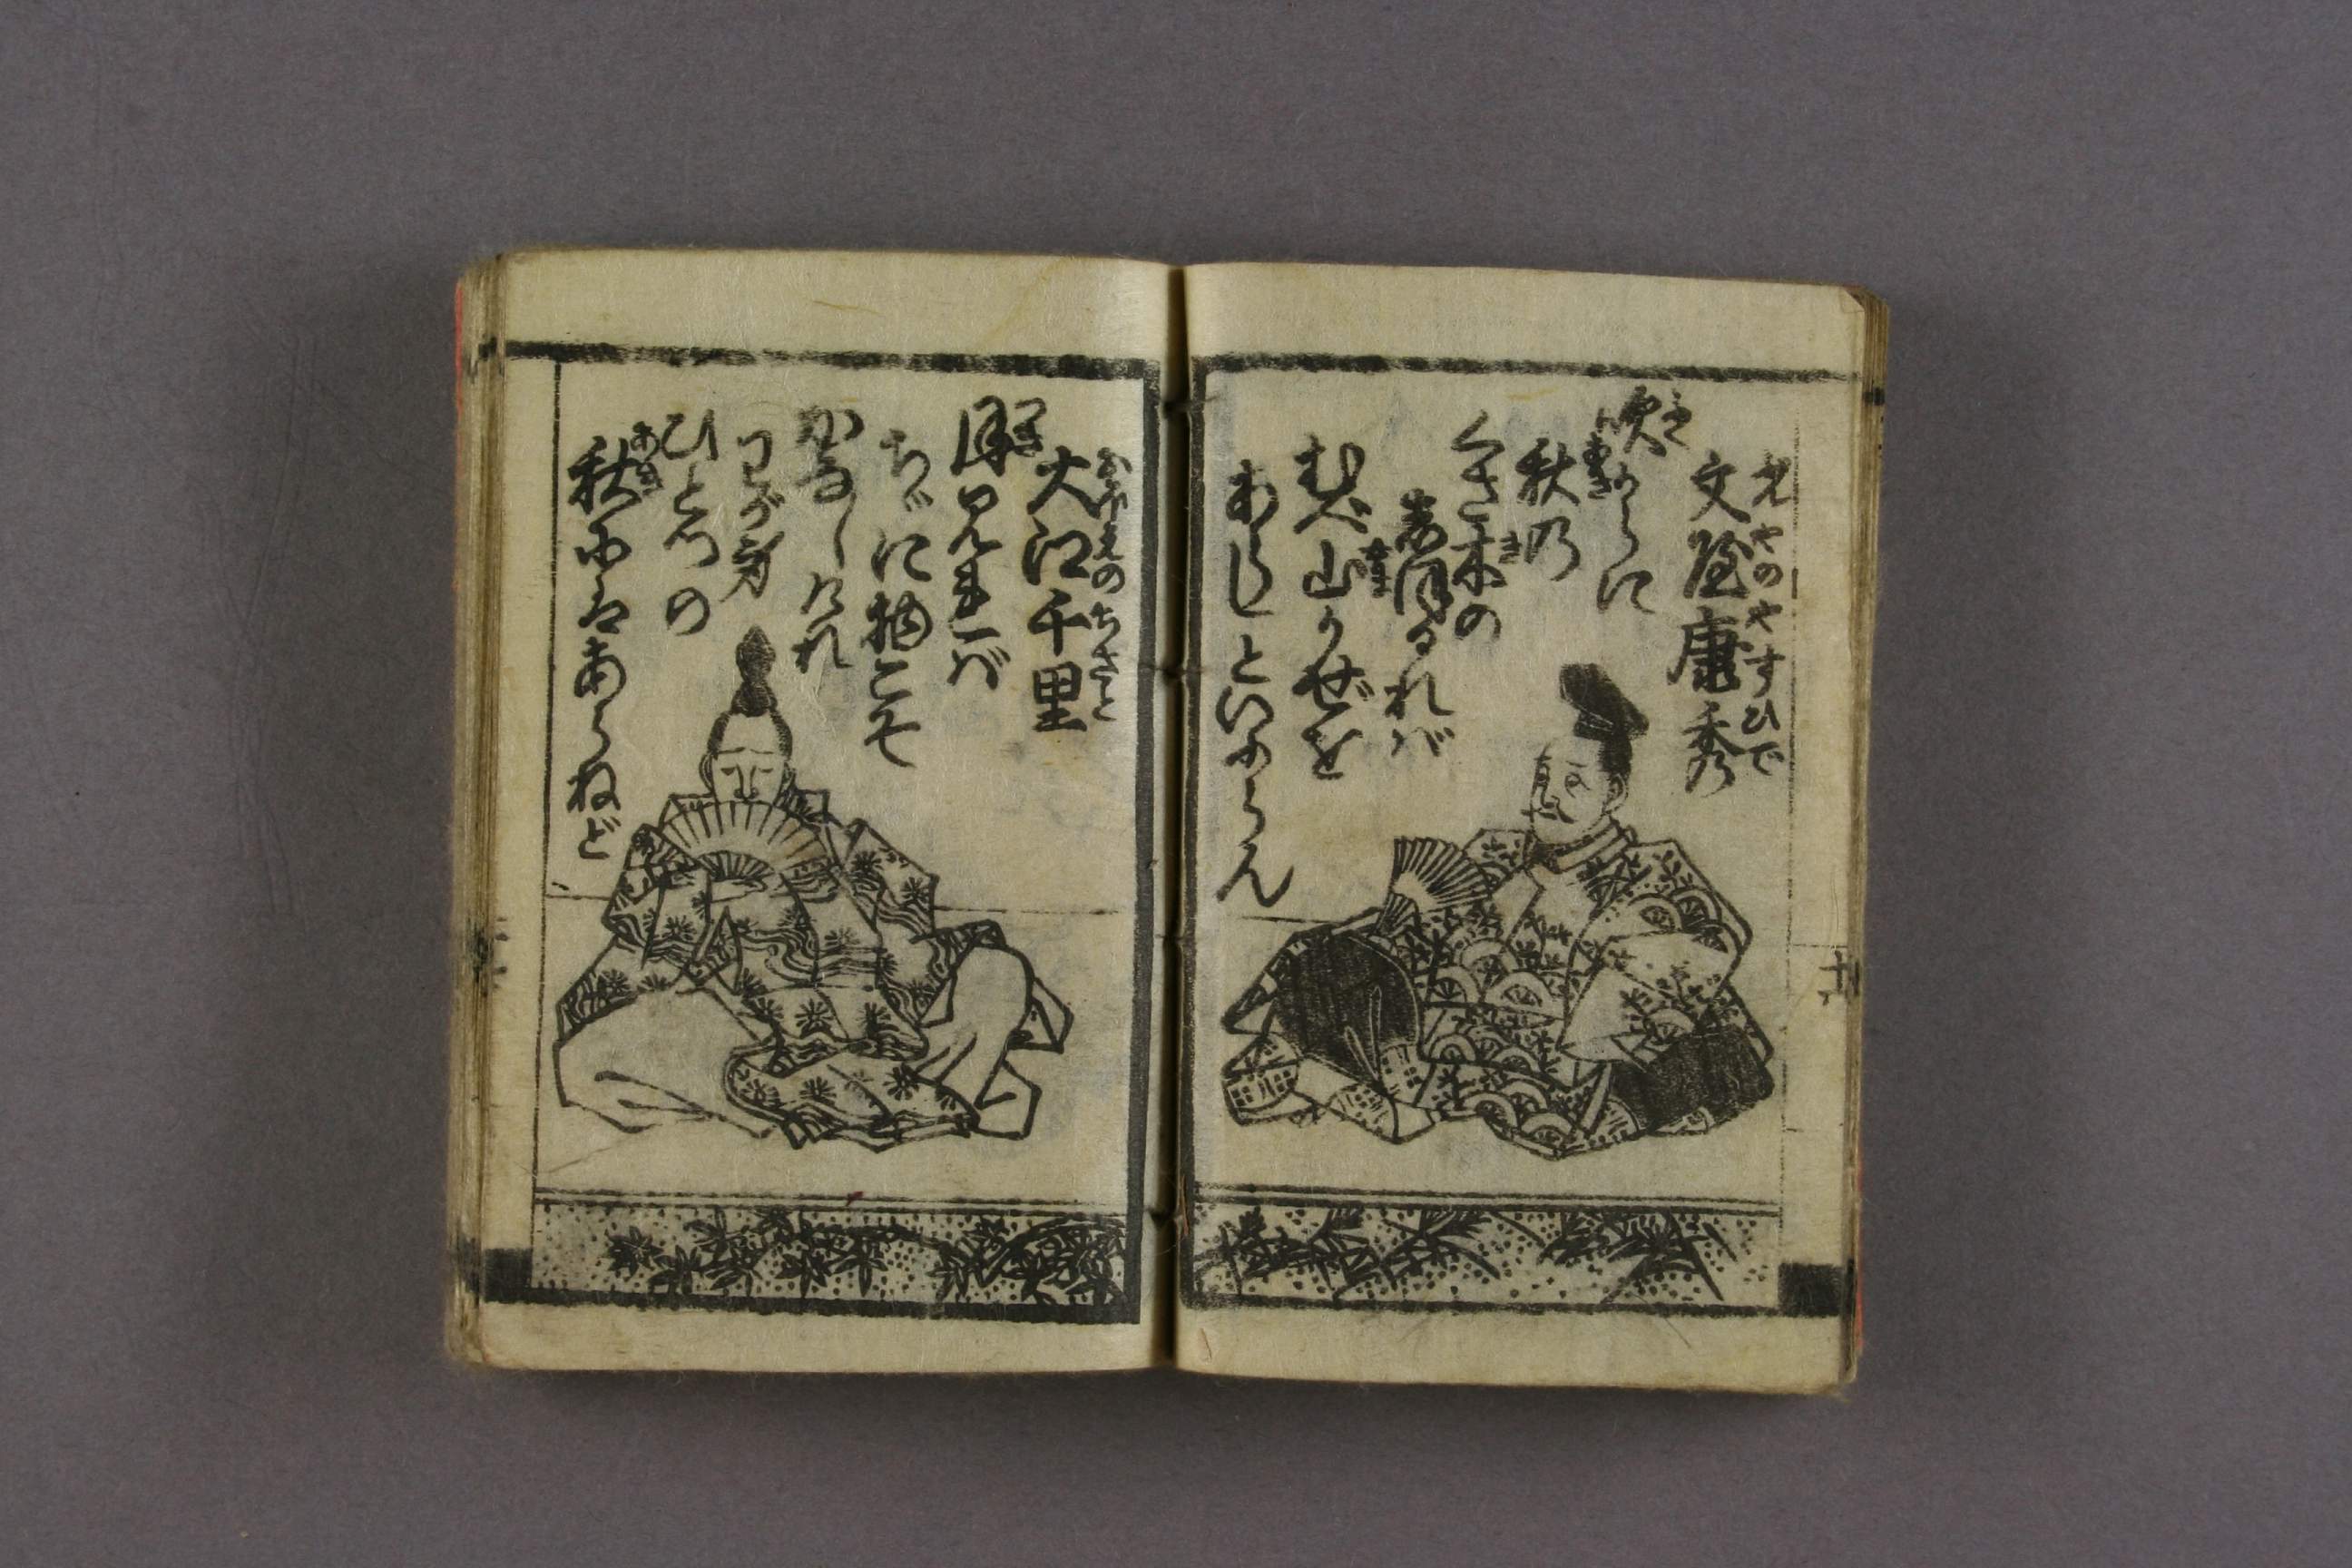 文屋康秀
ぶんやのやすひで
吹からに
ふく
秋の
あき
くさ木の
き
志ほるれば
むべ山かぜを
やま
あらしといふらん
大江千里
おほえのちさと
月見れば
つき
ちゞに物こそ
かなしけれ
わが身
ひとつの
秋にはあらねど
あき